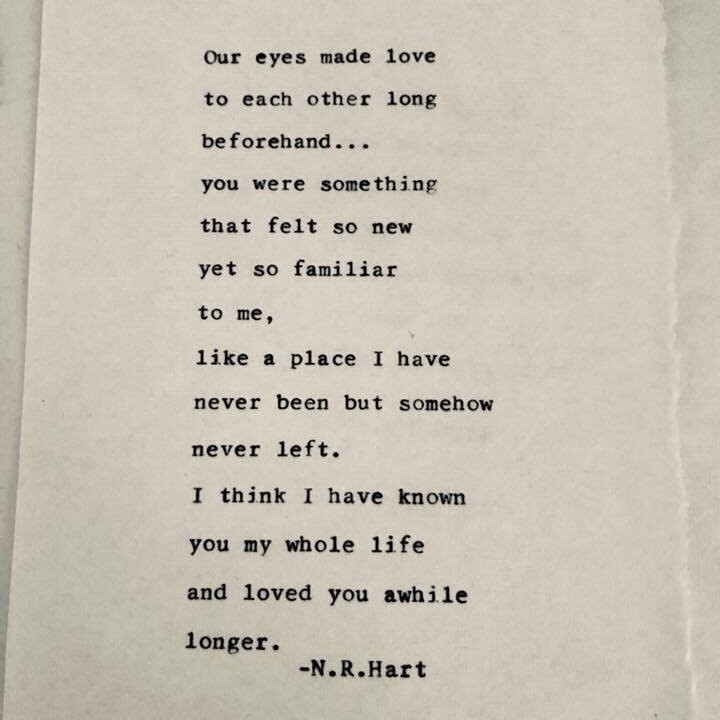 Our eyes made love
to each other long
beforehand...
you were something
that felt so new
yet so familiar
to me,
like a place I have
never been but somehow
never left.
I think I have known
you my whole life
and loved you awhile
longer.
-N.R.Hart